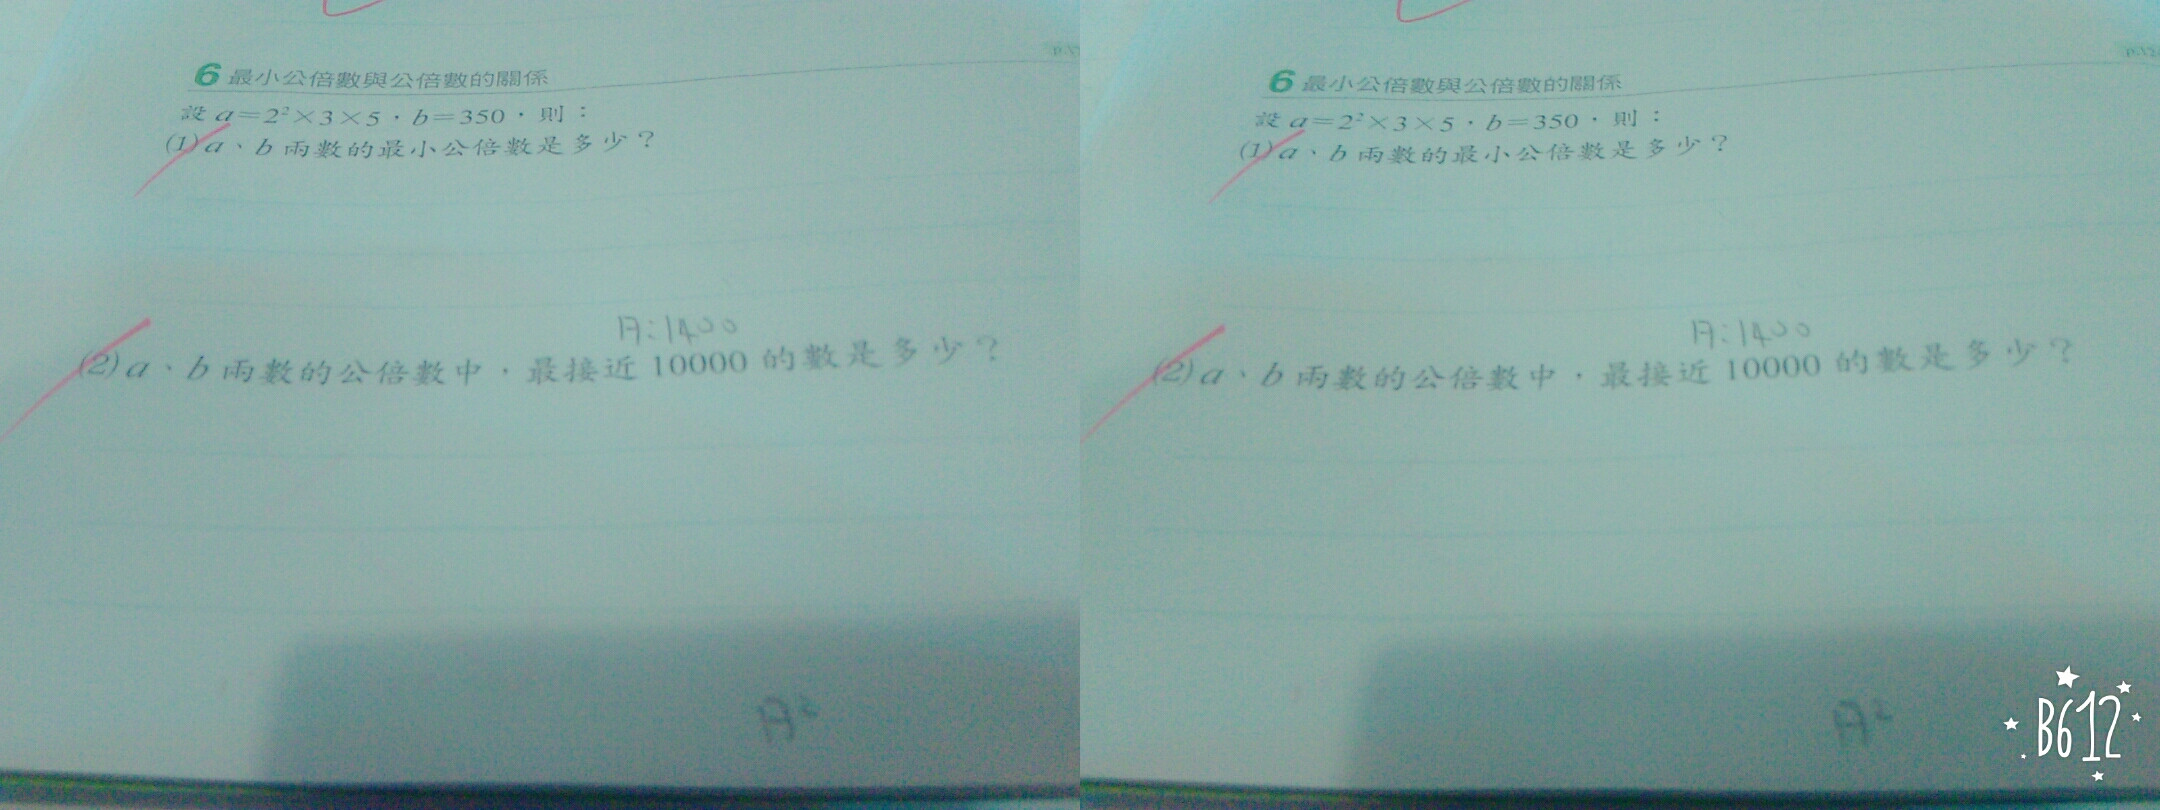 6 最小公倍數與公倍數的關係
設 a=2²×3×5，b=350，則：
(1) a、b 兩數的最小公倍數是多少？
A:1400
(2) a、b 兩數的公倍數中，最接近 10000 的數是多少？
6 最小公倍數與公倍數的關係
設 a=2²×3×5，b=350，則：
(1) a、b 兩數的最小公倍數是多少？
A:1400
(2) a、b 兩數的公倍數中，最接近 10000 的數是多少？
B612